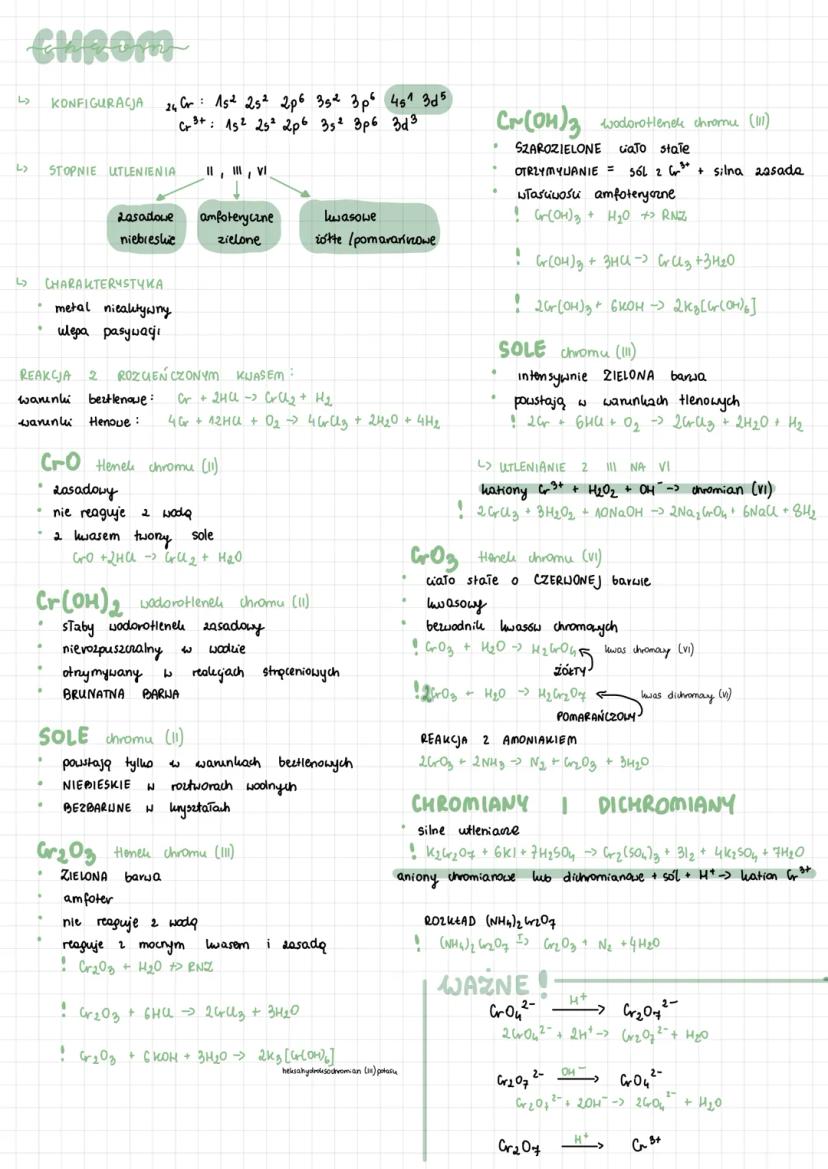 CHROM
chrom
↳ KONFIGURACJA ₂₄Cr : 1s² 2s² 2p⁶ 3s² 3p⁶ 4s¹ 3d⁵
Cr³⁺ : 1s² 2s² 2p⁶ 3s² 3p⁶ 3d³
↳ STOPNIE UTLENIENIA II, III, VI
zasadowe niebieskie
amfoteryczne zielone
kwasowe żółte/pomarańczowe
↳ CHARAKTERYSTYKA
• metal nieaktywny
• ulega pasywacji
REAKCJA Z ROZCIEŃCZONYM KWASEM:
warunki beztlenowe: Cr + 2HCl -> CrCl₂ + H₂
warunki tlenowe: 4Cr + 12HCl + O₂ -> 4CrCl₃ + 2H₂O + 4H₂
CrO tlenek chromu (II)
• zasadowy
• nie reaguje z wodą
• z kwasem tworzy sole
CrO + 2HCl -> CrCl₂ + H₂O
Cr(OH)₂ wodorotlenek chromu (II)
• słaby wodorotlenek zasadowy
• nierozpuszczalny w wodzie
• otrzymywany w reakcjach strąceniowych
• BRUNATNA BARWA
SOLE chromu (II)
• powstają tylko w warunkach beztlenowych
• NIEBIESKIE w roztworach wodnych
• BEZBARWNE w kryształach
Cr₂O₃ tlenek chromu (III)
• ZIELONA barwa
• amfoter
• nie reaguje z wodą
• reaguje z mocnym kwasem i zasadą
! Cr₂O₃ + H₂O ↛ RNZ
! Cr₂O₃ + 6HCl -> 2CrCl₃ + 3H₂O
! Cr₂O₃ + 6KOH + 3H₂O -> 2K₃[Cr(OH)₆]
heksahydroksochromian (III) potasu
Cr(OH)₃ wodorotlenek chromu (III)
• SZAROZIELONE ciało stałe
• OTRZYMYWANIE = sól z Cr³⁺ + silna zasada
• właściwości amfoteryczne
! Cr(OH)₃ + H₂O ↛ RNZ
! Cr(OH)₃ + 3HCl -> CrCl₃ + 3H₂O
! 2Cr(OH)₃ + 6KOH -> 2K₃[Cr(OH)₆]
SOLE chromu (III)
• intensywnie ZIELONA barwa
• powstają w warunkach tlenowych
! 2Cr + 6HCl + O₂ -> 2CrCl₃ + 2H₂O + H₂
↳ UTLENIANIE Z III NA VI
kationy Cr³⁺ + H₂O₂ + OH⁻ -> chromian (VI)
! 2CrCl₃ + 3H₂O₂ + 10NaOH -> 2Na₂CrO₄ + 6NaCl + 8H₂
CrO₃ tlenek chromu (VI)
• ciało stałe o CZERWONEJ barwie
• kwasowy
• bezwodnik kwasów chromowych
! CrO₃ + H₂O -> H₂CrO₄ kwas chromowy (VI)
ŻÓŁTY
! 2CrO₃ + H₂O -> H₂Cr₂O₇ kwas dichromowy (VI)
POMARAŃCZOWY
REAKCJA Z AMONIAKIEM
2CrO₃ + 2NH₃ -> N₂ + Cr₂O₃ + 3H₂O
CHROMIANY I DICHROMIANY
• silne utleniacze
! K₂Cr₂O₇ + 6KI + 7H₂SO₄ -> Cr₂(SO₄)₃ + 3I₂ + 4K₂SO₄ + 7H₂O
aniony chromianowe lub dichromianowe + sól + H⁺ -> kation Cr³⁺
ROZKŁAD (NH₄)₂Cr₂O₇
! (NH₄)₂Cr₂O₇ T-> Cr₂O₃ + N₂ + 4H₂O
WAŻNE!
CrO₄²⁻ H⁺→ Cr₂O₇²⁻
2CrO₄²⁻ + 2H⁺ -> Cr₂O₇²⁻ + H₂O
Cr₂O₇²⁻ OH⁻→ CrO₄²⁻
Cr₂O₇²⁻ + 2OH⁻ -> 2CrO₄²⁻ + H₂O
Cr₂O₇ H⁺→ Cr³⁺